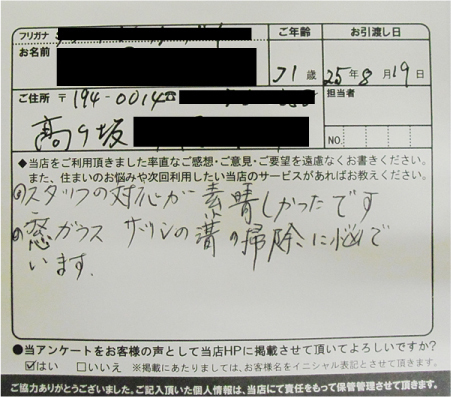 フリガナ
ご年齢
お引渡し日
お名前
71歳
25年8月19日
ご住所 〒194-0014☎
担当者
高ヶ坂
NO.
◆当店をご利用頂きました率直なご感想・ご意見・ご要望を遠慮なくお書きください。
また、住まいのお悩みや次回利用したい当店のサービスがあればお教えください。
①スタッフの対応が素晴しかったです
②窓ガラス サッシの溝の掃除に悩んで
います.
●当アンケートをお客様の声として当店HPに掲載させて頂いてよろしいですか?
はい □いいえ ※掲載にあたりましては、お客様名をイニシャル表記とさせて頂きます。
ご協力ありがとうございました。ご記入頂いた個人情報は、当店にて責任をもって保管管理させて頂きます。